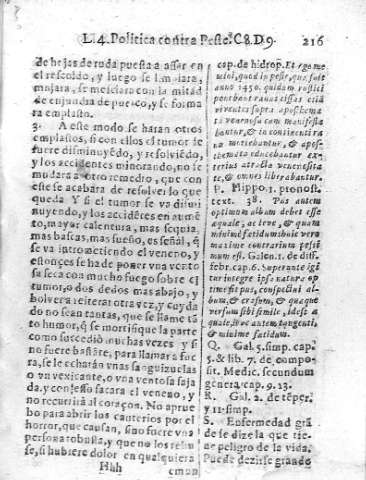 L. 4. Politica contra Peste. C 8. D. 9. 216
de hojas de ruda puesta a assar en
el rescoldo, y luego se limpiarà,
majarà, se mesclarà con la mitad
de enjundia de puerco, y se forma
rà emplasto.
3. A este modo se haràn otros
emplastos, si con ellos el tumor se
fuere disminuyẽdo, y resolviẽdo,
y los accidentes minorando, no se
mudarà a otro remedro, que con
este se acabarà de resolver lo que
queda Y si el tumor se và dismi
nuyendo, y los accidẽtes en aumẽ
to, mayor calentura, mas sequia,
mas bascas, mas sueño, es señal, q̃
se và intromectiendo el veneno, y
estonçes se ha de poner vna vento
sa seca con mucho fuego sobre el
tumor, ò dos dedos mas abajo, y
bolverà reiterar otra vez, y cuyda
do no sean tantas, que se llame tã
to humor, q̃ se mortifique la parte
como succediò muchas vezes y si
no fuere bastãte, para llamar à fue
ra, se le echaràn vnas sanguizuelas
ò vn vexicante, o vna ventosa faja
da, y con jesso sacara el veneno, y
no recurrirà al coraçon. No aprue
bo para abrir los cauterios por el
horror, que causan, sino fuere vna
persona robusta, y que no los rehu
se, si hubiere dolor en qualquiera
Hhh emun
cap. de hidrop. Et ego me
mini, quod in peste, quæ fuit
anno 1450. quidam rustici
ponebant ranas essas cità
viventes supra apostema
ta venenosa cum manifesta
bantur, & in continenti ra
næ moriebantur, & apos-
themata educebantur ex-
terius atracta venenosita
te, & omnes liberabantur.
P. Hippo 1. pronost.
text. 38. Pus autem
optimum album debet esse
æquale, ac leve, & quam
minimè fætidum huic verò
maxime contrarium pessi
mum est. Galen 1. de diff.
febr. cap. 6. Superante igi
tur integre ipsa natura op
time fit pus, conspectui al-
bum, & crasum, & quaque
versum sibi simile, ideo æ
quale, leve autem tangenti,
& minime fætidum.
Q. Gal. 5. simp. cap.
5. & lib. 7. de compo-
sit. Medic. secundum
genera cap. 9. 13.
R. Gal. 2. de tẽper.
y 11. simp.
S. Enfermedad grã
de se dize la que tie-
ne peligro de la vida.
Puede dezirse grande